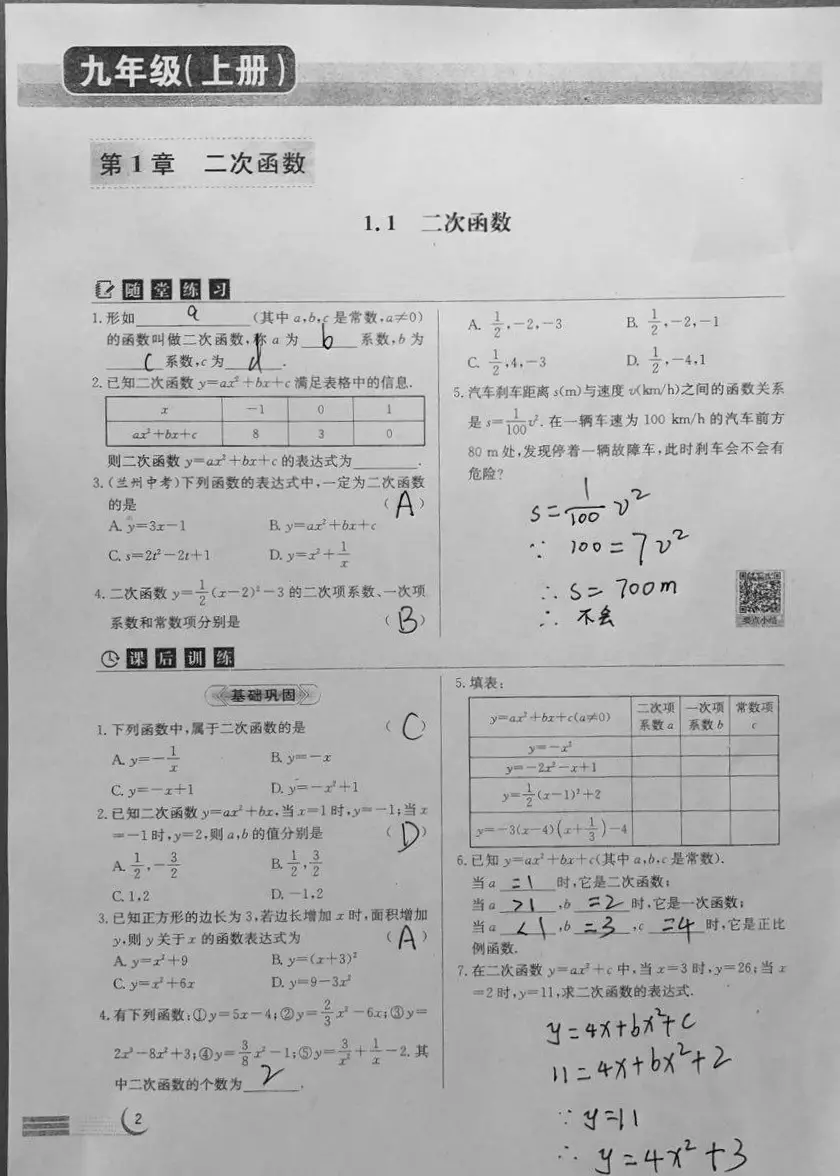 九年级(上册)
第1章 二次函数
1.1 二次函数
随堂练习
1.形如 a (其中a,b,c是常数,a≠0)
的函数叫做二次函数,称a为 b 系数,b为
c 系数,c为 d .
2.已知二次函数y=ax²+bx+c满足表格中的信息.
x -1 0 1
ax²+bx+c 8 3 0
则二次函数y=ax²+bx+c的表达式为________.
3.(兰州中考)下列函数的表达式中,一定为二次函数
的是 (A)
A. y=3x-1 B. y=ax²+bx+c
C. s=2t²-2t+1 D. y=x²+1/x
4.二次函数y=1/2(x-2)²-3的二次项系数、一次项
系数和常数项分别是 (B)
A. 1/2,-2,-3 B. 1/2,-2,-1
C. 1/2,4,-3 D. 1/2,-4,1
5.汽车刹车距离s(m)与速度v(km/h)之间的函数关系
是s=1/100v².在一辆车速为100 km/h的汽车前方
80 m处,发现停着一辆故障车,此时刹车会不会有
危险?
s=1/100 v²
∵ 100=7v²
∴ s=700m
∴ 不会
要点小结
课后训练
基础巩固
1.下列函数中,属于二次函数的是 (C)
A. y=-1/x B. y=-x
C. y=-x+1 D. y=-x²+1
2.已知二次函数y=ax²+bx,当x=1时,y=-1;当x
=-1时,y=2,则a,b的值分别是 (D)
A. 1/2,-3/2 B. 1/2,3/2
C. 1,2 D. -1,2
3.已知正方形的边长为3,若边长增加x时,面积增加
y,则y关于x的函数表达式为 (A)
A. y=x²+9 B. y=(x+3)²
C. y=x²+6x D. y=9-3x²
4.有下列函数:①y=5x-4;②y=2/3x²-6x;③y=
2x³-8x²+3;④y=3/8x²-1;⑤y=3/x²+1/x-2.其
中二次函数的个数为 2 .
5.填表:
y=ax²+bx+c(a≠0) 二次项系数a 一次项系数b 常数项c
y=-x²
y=-2x²-x+1
y=1/2(x-1)²+2
y=-3(x-4)(x+1/3)-4
6.已知y=ax²+bx+c(其中a,b,c是常数).
当a =1 时,它是二次函数;
当a >1 ,b =2 时,它是一次函数;
当a <1 ,b =3 ,c =4 时,它是正比
例函数.
7.在二次函数y=ax²+c中,当x=3时,y=26;当x
=2时,y=11,求二次函数的表达式.
y=4x+bx²+c
11=4x+bx²+2
∵ y=11
∴ y=4x²+3
2